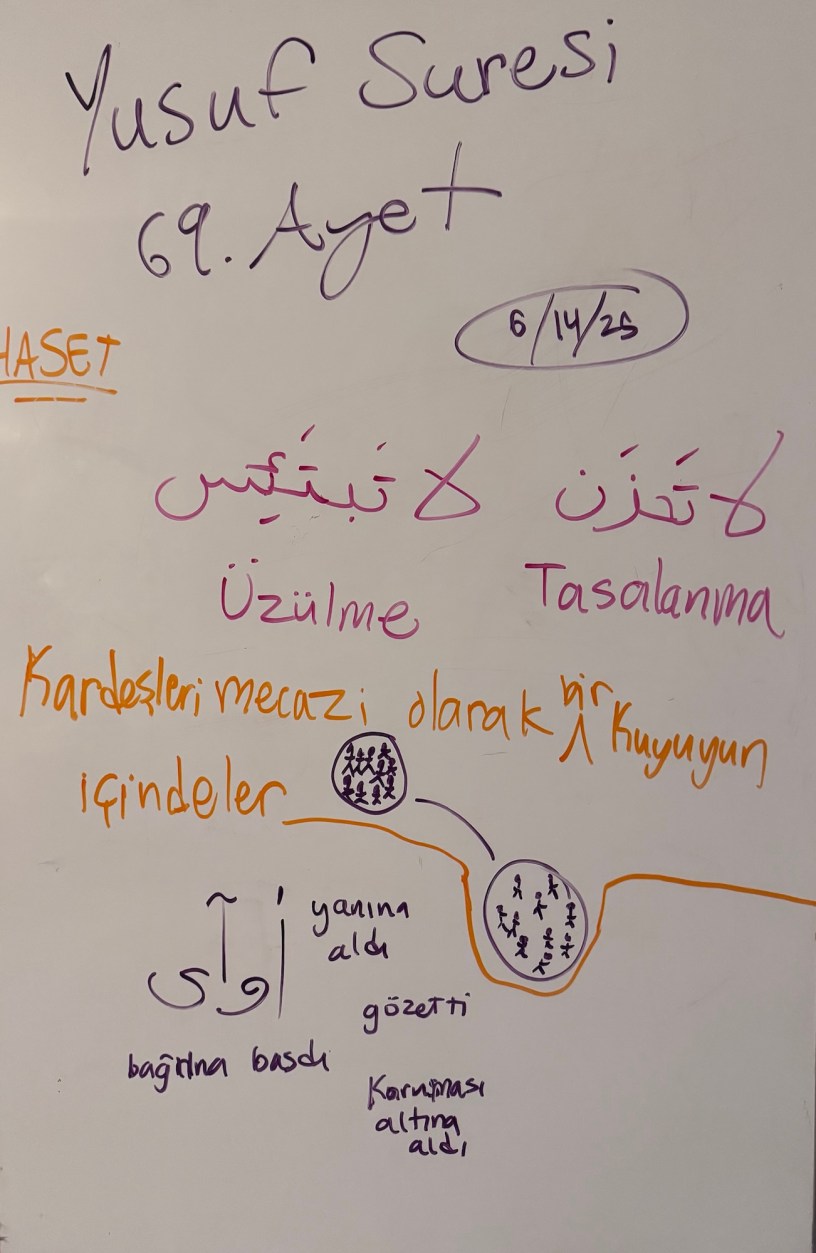 Yusuf Suresi
69. Ayet
6/14/25
HASET
لا تَحزَن لا تَبتَئِس
Üzülme Tasalanma
Kardeşleri mecazi olarak bir Kuyuyun
içindeler
أوآى
yanına
aldı
gözetti
bağrına basdı
Koruması
altına
aldı